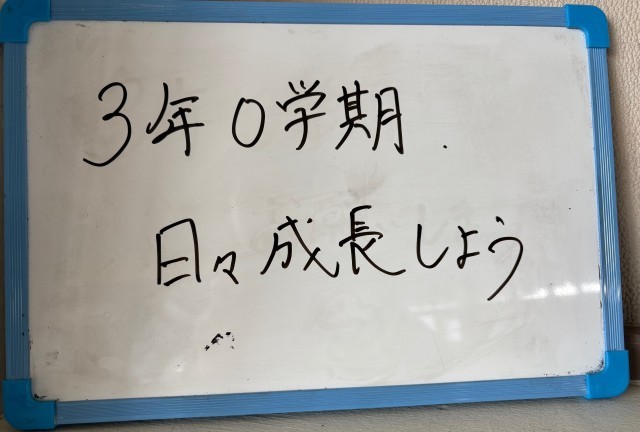 3年0学期.
日々成長しよう